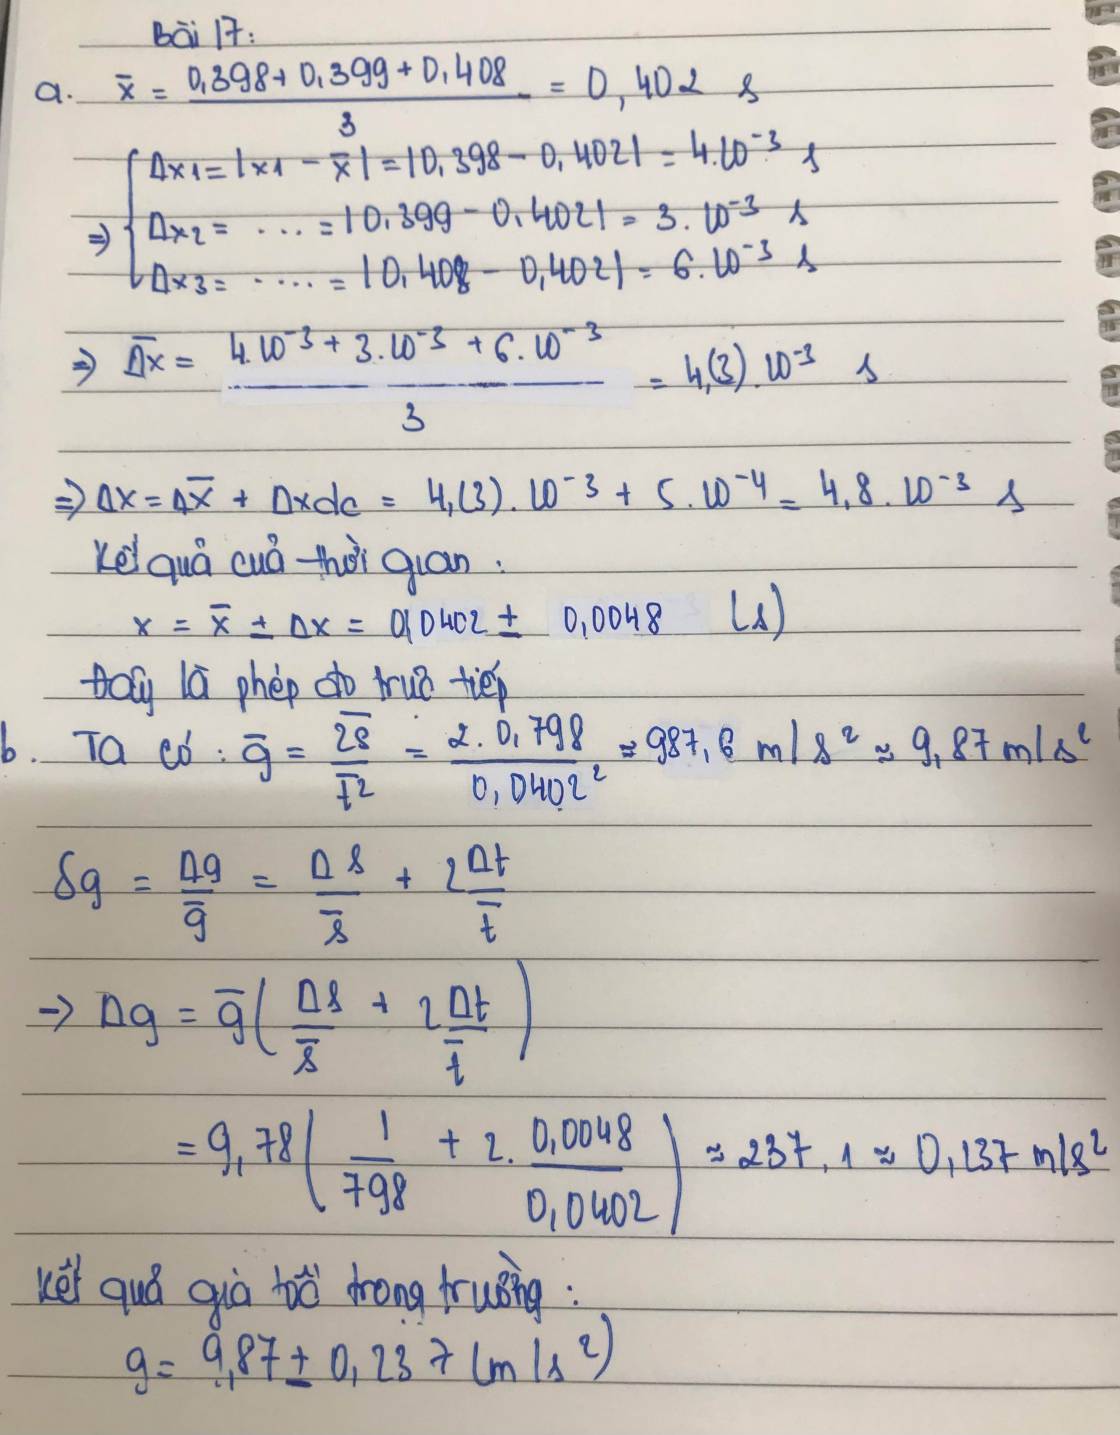 Bài 17:
a. x̄ = (0,398 + 0,399 + 0,408)/3 = 0,402 s
Δx1 = |x1 - x̄| = |0,398 - 0,402| = 4.10⁻³ s
⇒ Δx2 = .... = |0,399 - 0,402| = 3.10⁻³ s
Δx3 = ..... = |0,408 - 0,402| = 6.10⁻³ s
⇒ Δ̄x̄ = (4.10⁻³ + 3.10⁻³ + 6.10⁻³)/3 = 4,(3).10⁻³ s
⇒ Δx = Δx̄ + Δxdc = 4,(3).10⁻³ + 5.10⁻⁴ = 4,8.10⁻³ s
Kết quả của thời gian:
x = x̄ ± Δx = 0,0402 ± 0,0048 (s)
Đây là phép đo trực tiếp
b. Ta có: ḡ = 2s̄/t̄² = 2.0,798/0,0402² ≈ 987,6 m/s² ≈ 9,87 m/s²
δg = Δg/ḡ = Δs/s̄ + 2Δt/t̄
→ Δg = ḡ(Δs/s̄ + 2Δt/t̄)
= 9,78(1/798 + 2.0,0048/0,0402) ≈ 237,1 ≈ 0,237 m/s²
Kết quả gia tốc trọng trường:
g = 9,87 ± 0,237 (m/s²)